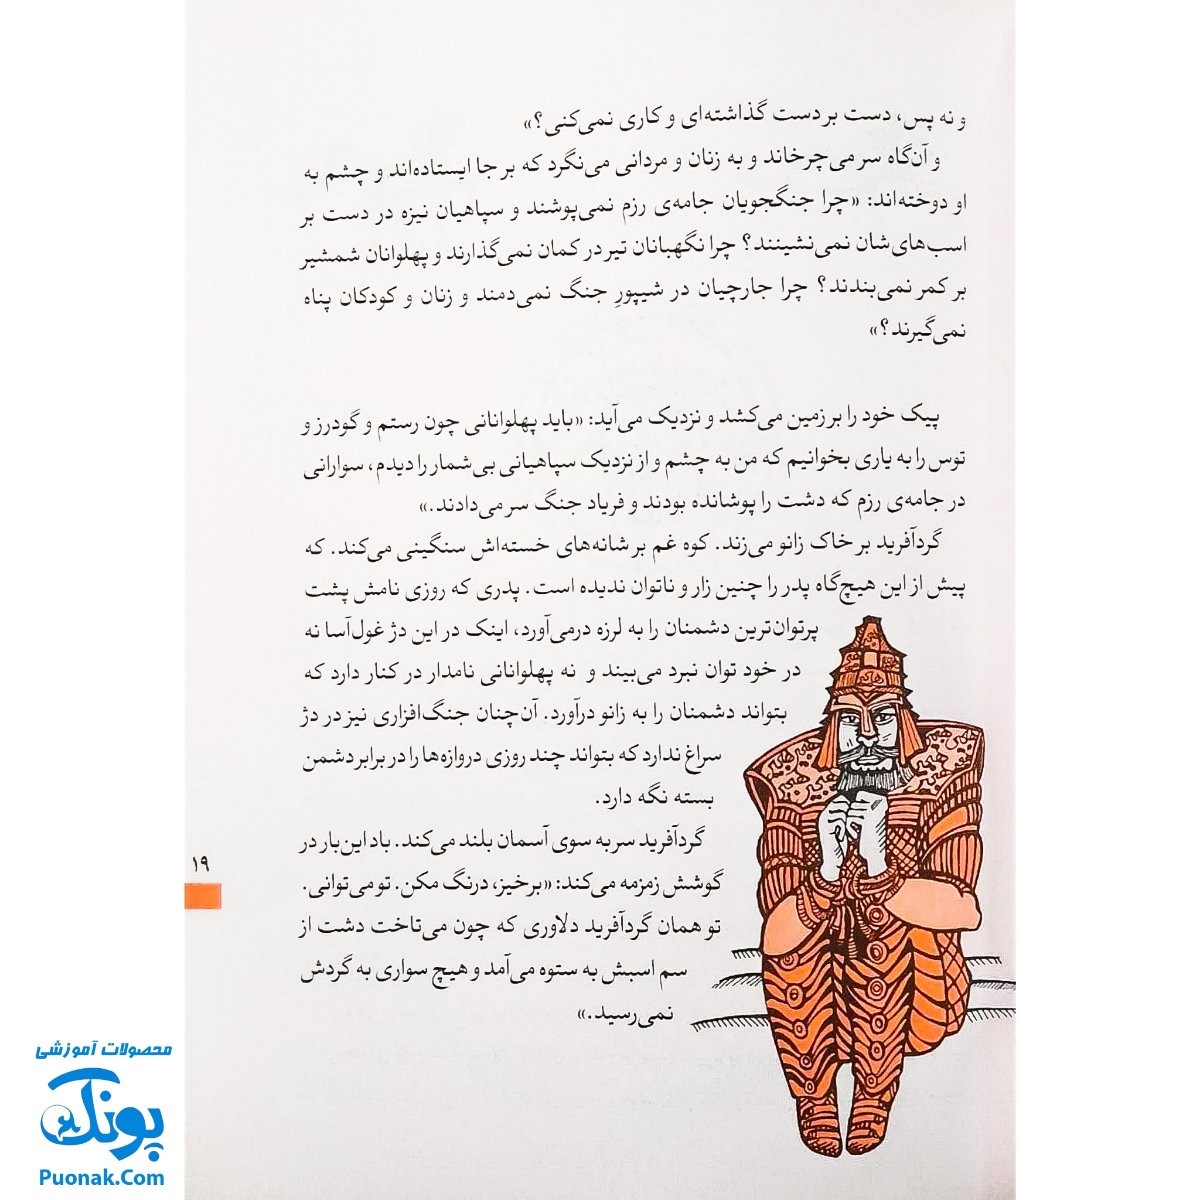 و نه پس، دست بر دست گذاشته‌ای و کاری نمی‌کنی؟»
و آن‌گاه سر می‌چرخاند و به زنان و مردانی می‌نگرد که بر جا ایستاده‌اند و چشم به
او دوخته‌اند: «چرا جنگجویان جامه‌ی رزم نمی‌پوشند و سپاهیان نیزه در دست بر
اسب‌های‌شان نمی‌نشینند؟ چرا نگهبانان تیر در کمان نمی‌گذارند و پهلوانان شمشیر
بر کمر نمی‌بندند؟ چرا جارچیان در شیپورِ جنگ نمی‌دمند و زنان و کودکان پناه
نمی‌گیرند؟»
پیک خود را بر زمین می‌کشد و نزدیک می‌آید: «باید پهلوانانی چون رستم و گودرز و
توس را به یاری بخوانیم که من به چشم و از نزدیک سپاهیانی بی‌شمار را دیدم، سوارانی
در جامه‌ی رزم که دشت را پوشانده بودند و فریاد جنگ سر می‌دادند.»
گردآفرید بر خاک زانو می‌زند. کوه غم بر شانه‌های خسته‌اش سنگینی می‌کند. که
پیش از این هیچ‌گاه پدر را چنین زار و ناتوان ندیده است. پدری که روزی نامش پشت
پرتوان‌ترین دشمنان را به لرزه درمی‌آورد، اینک در این دژ غول‌آسا نه
در خود توان نبرد می‌بیند و نه پهلوانانی نامدار در کنار دارد که
بتواند دشمنان را به زانو درآورد. آن‌چنان جنگ‌افزاری نیز در دژ
سراغ ندارد که بتواند چند روزی دروازه‌ها را در برابر دشمن
بسته نگه دارد.
گردآفرید سر به سوی آسمان بلند می‌کند. باد این‌بار در
گوشش زمزمه می‌کند: «برخیز، درنگ مکن. تو می‌توانی.
تو همان گردآفرید دلاوری که چون می‌تاخت دشت از
سم اسبش به ستوه می‌آمد و هیچ سواری به گردش
نمی‌رسید.»
۱۹
محصولات آموزشی
پونک
Puonak.Com